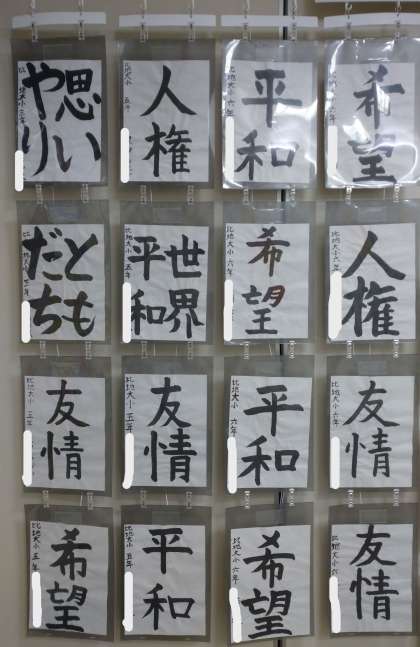 思い
やり
人権
比地大小 五年
平和
比地大小 六年
希望
とも
だち
世界
平和
比地大小 五年
希望
比地大小 六年
人権
比地大小 六年
友情
比地大小 五年
友情
比地大小 五年
平和
比地大小 六年
友情
比地大小 六年
希望
比地大小 五年
平和
比地大小 五年
希望
比地大小 六年
友情
比地大小 六